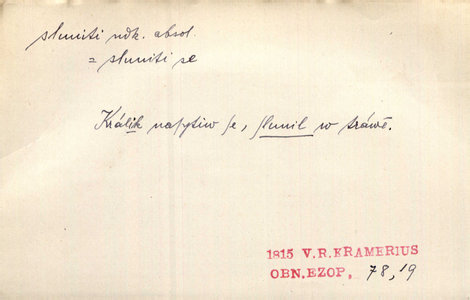 sluniti ndk. absol.
= sluniti se
Králik nasytiw ſe, ſlunil w tráwě.
1815 V.R.KRAMERIUS
OBN.EZOP, 78,19